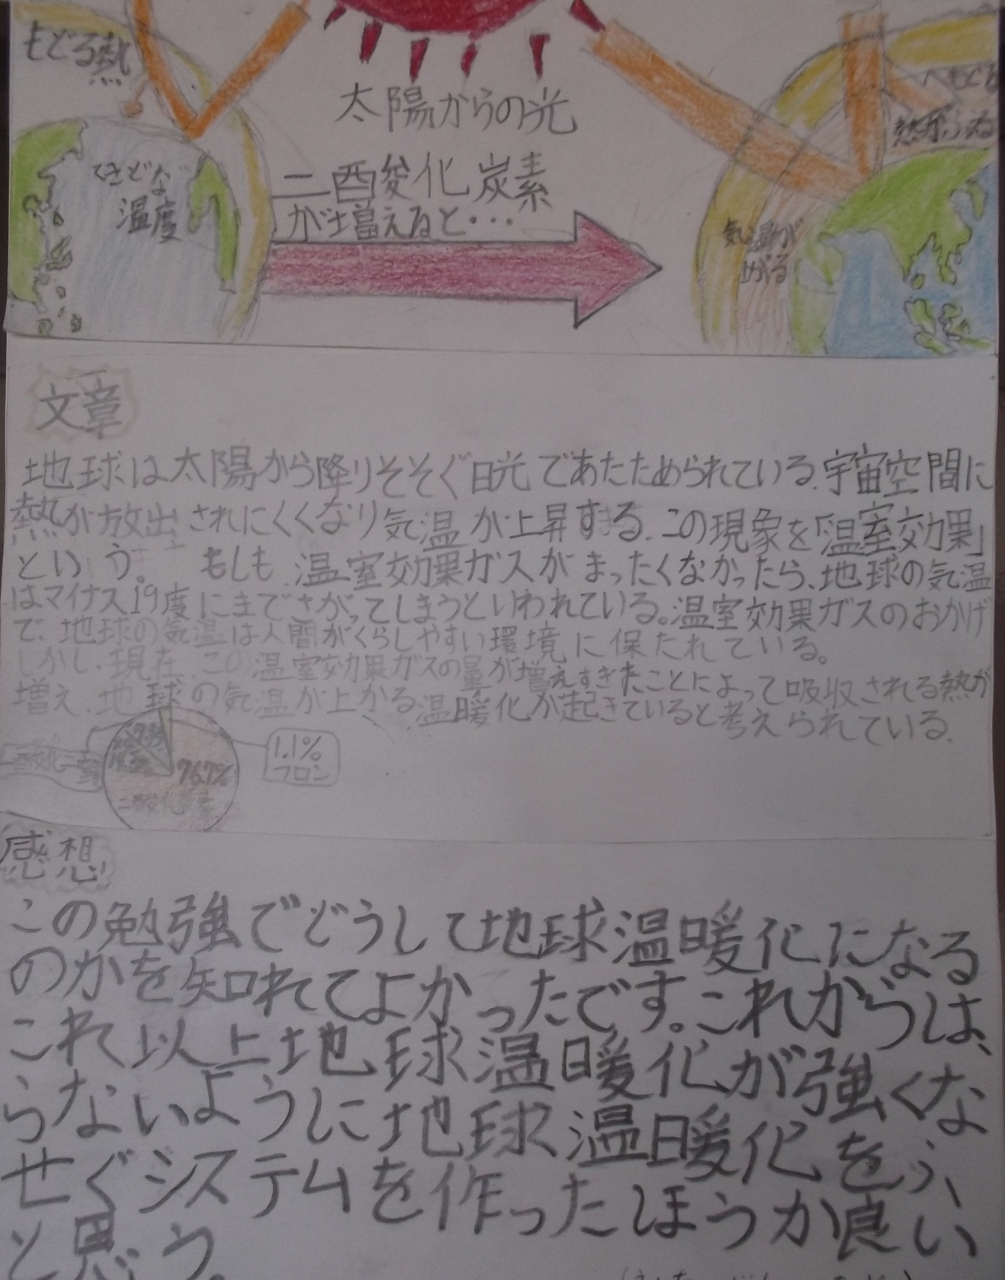 もどる熱
太陽からの光
てきどな
温度
二酸化炭素
が増えると・・・
気温が
上がる
文章
地球は太陽から降りそそぐ日光であたためられている。宇宙空間に
熱が放出されにくくなり気温が上昇する。この現象を「温室効果」
という。もしも、温室効果ガスがまったくなかったら、地球の気温
はマイナス19度にまでさがってしまうといわれている。温室効果ガスのおかげ
で、地球の気温は人間がくらしやすい環境に保たれている。
しかし、現在、この温室効果ガスの量が増えすぎたことによって吸収される熱が
増え、地球の気温が上がる温暖化が起きていると考えられている。
1.1%
フロン
76.7%
二酸化炭素
感想
この勉強でどうして地球温暖化になる
のかを知れてよかったです。これからは、
これ以上地球温暖化が強くな
らないように地球温暖化をふ
せぐシステムを作ったほうが良い
と思う。